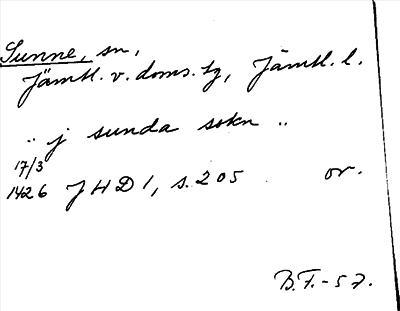 Sunne, sn,
Jämtl. v. doms. tg, Jämtl. l.
.. j sunda sokn ..
17/3
1426 JHD 1, s. 205 or.
B.F. - 57.